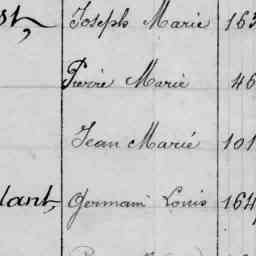 st, Joseph Marie 163
Pierre Marie 46
Jean Marie 101
lant, Germain Louis 164